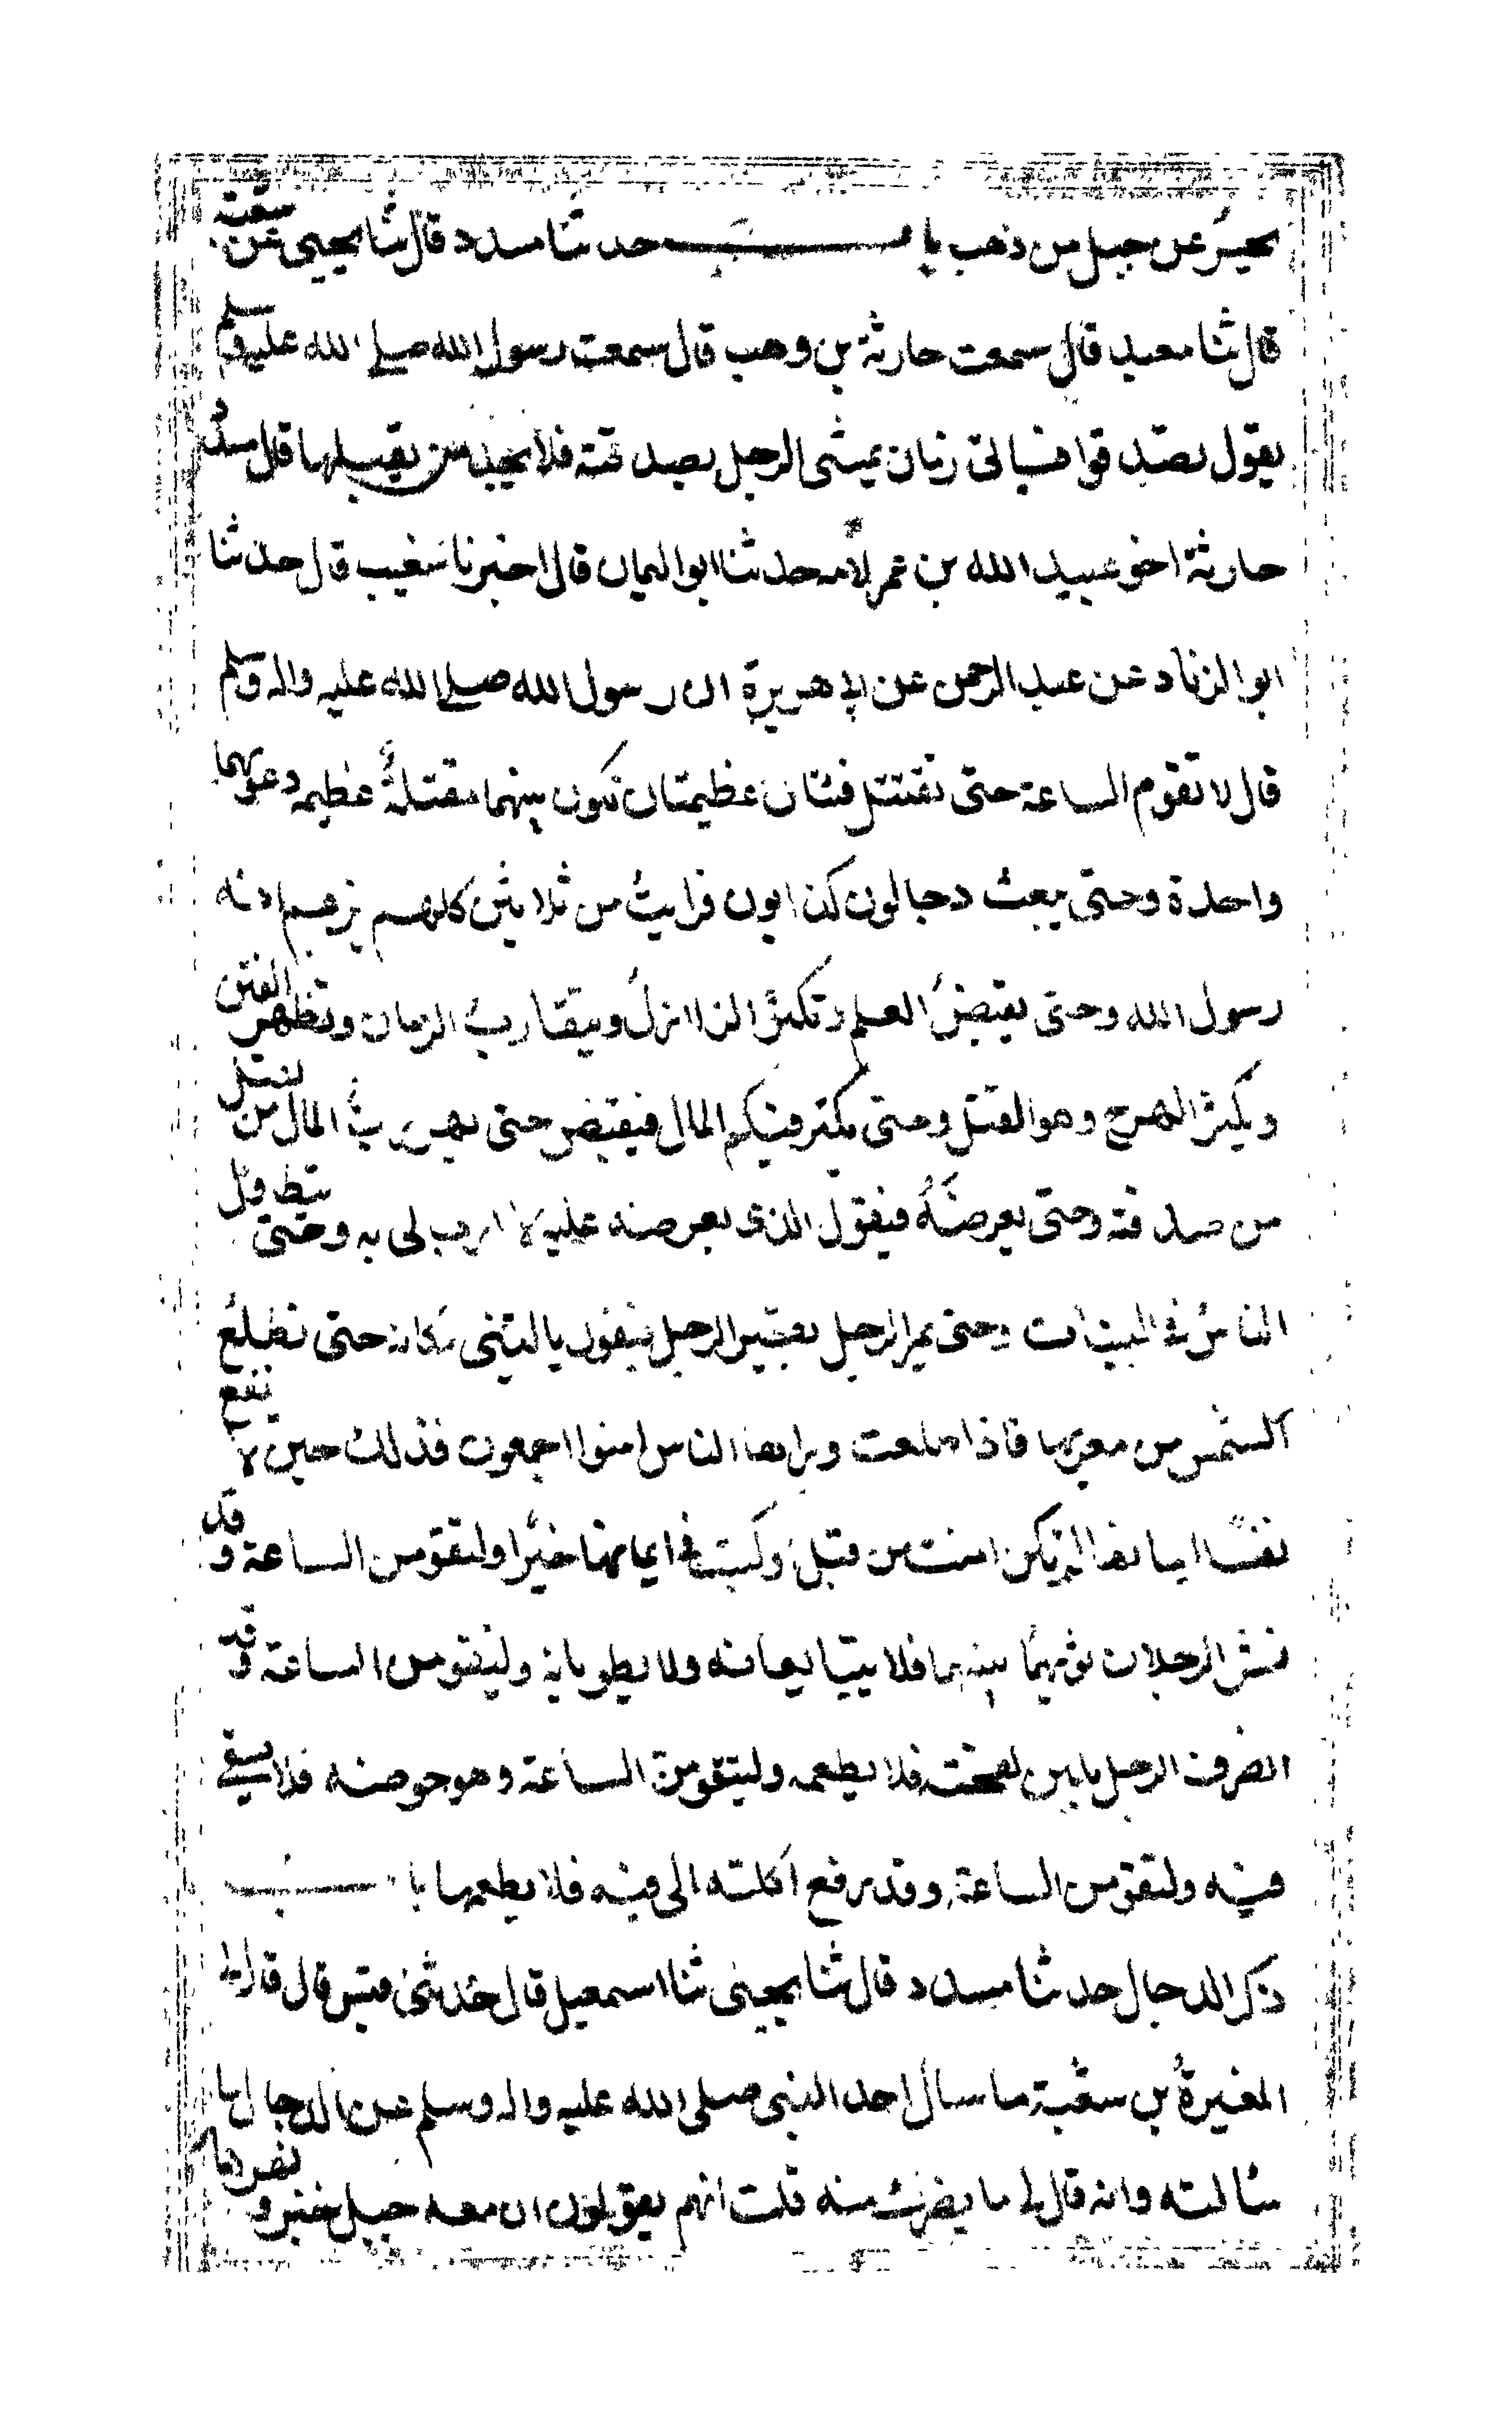 يحسر عن جبل من ذهب باب حدثنا مسدد قال ثنا يحيى عن شعبة
قال ثنا معبد قال سمعت حارثة بن وهب قال سمعت رسول الله صلى الله عليه وسلم
يقول تصدقوا فسياتى زمان يمشى الرجل بصدقته فلا يجد من يقبلها قال مسدد
حارثة اخو عبيد الله بن عمر لامه حدثنا ابو اليمان قال اخبرنا شعيب قال حدثنا
ابو الزناد عن عبد الرحمن عن ابي هريرة ان رسول الله صلى الله عليه واله وسلم
قال لا تقوم الساعة حتى تقتتل فئتان عظيمتان تكون بينهما مقتلة عظيمه دعوتهما
واحدة وحتى يبعث دجالون كذابون قرايب من ثلاثين كلهم يزعم انه
رسول الله وحتى يقبض العلم وتكثر الزلازل ويتقارب الزمان وتظهر الفتن
ويكثر الهرج وهو القتل وحتى يكثر فيكم المال فيفيض حتى يهم رب المال من يقبل
من صدقته وحتى يعرضه فيقول الذى يعرضه عليه لا ارب لى به وحتى يتطاول
الناس في البنيان وحتى يمر الرجل بقبر الرجل فيقول يا ليتنى مكانه حتى تطلع
الشمس من مغربها فاذا طلعت وراها الناس امنوا اجمعون فذلك حين لا ينفع
نفسا ايمانها لم تكن امنت من قبل وكسبت في ايمانها خيرا ولتقومن الساعة وقد
نشر الرجلان ثوبهما بينهما فلا يتبايعانه ولا يطويانه ولتقومن الساعة وقد
انصرف الرجل بلبن لقحته فلا يطعمه ولتقومن الساعة وهو حوضه فلا يسقي
فيه ولتقومن الساعة وقد رفع اكلته الى فيه فلا يطعمها باب
ذكر الدجال حدثنا مسدد قال ثنا يحيى ثنا اسمعيل قال حدثنى قيس قال قال لي
المغيرة بن شعبة ما سال احد النبى صلى الله عليه واله وسلم عن الدجال ما
سالته وانه قال لي ما يضرك منه قلت انهم يقولون ان معه جبل خبز و نهر ماء